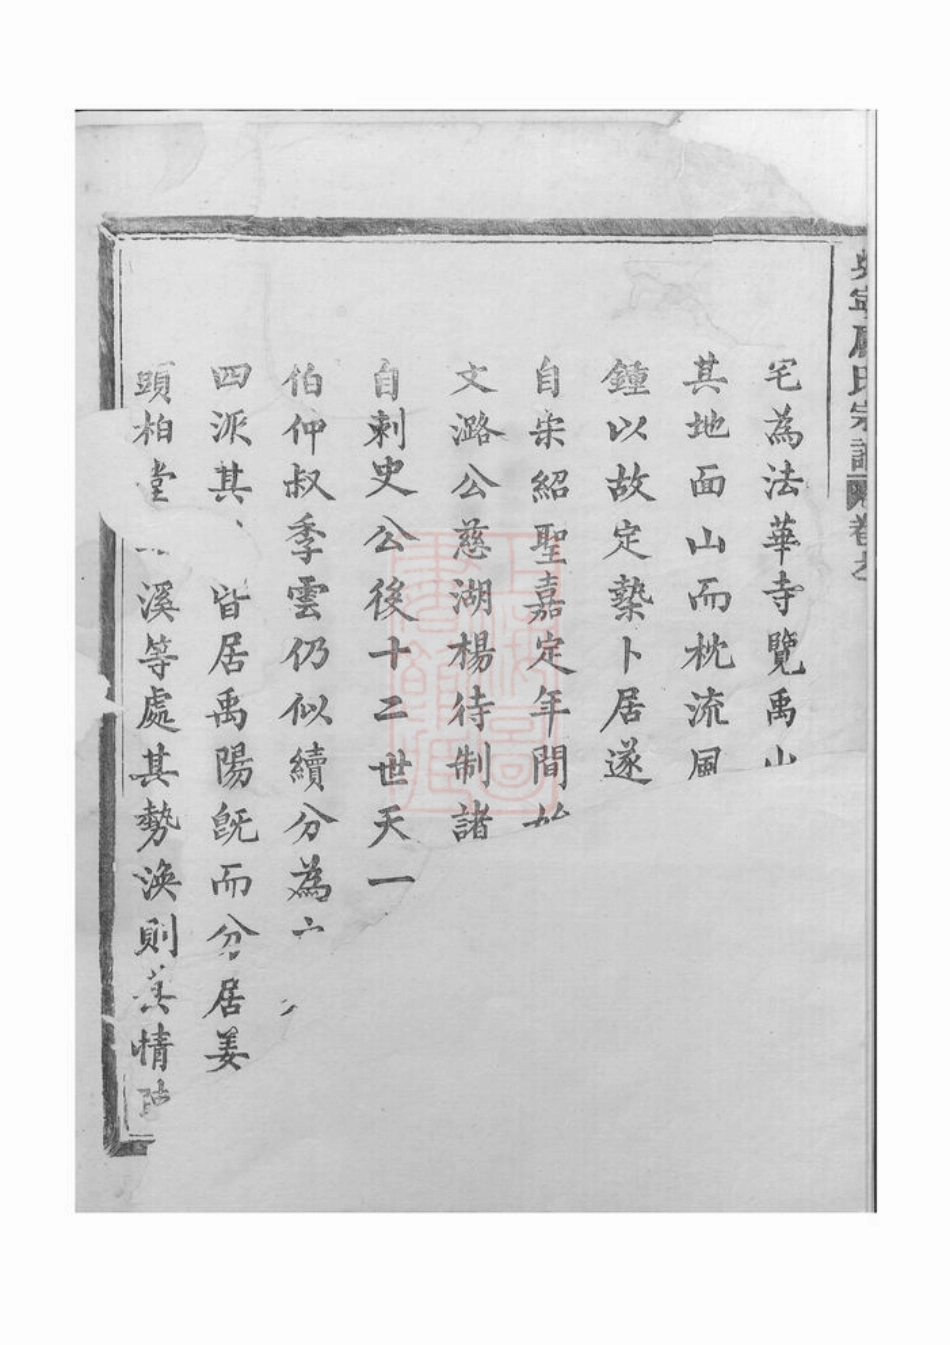 氏宗譜
卷之
宅為法華寺覽禹山
其地面山而枕流風
鍾以故定蓺卜居遂
自宋紹聖嘉定年間始
文潞公慈湖楊待制諸
自刺史公後十二世天一
伯仲叔季雲仍似續分為六
四派其 皆居禹陽旣而分居姜
頭柏堂 溪等處其勢渙則其情